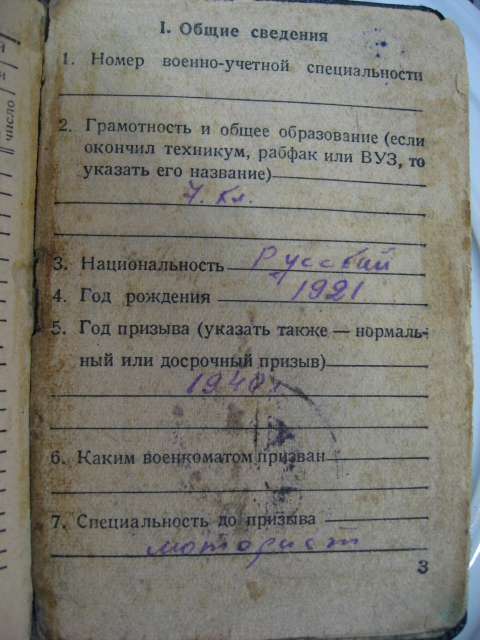 I. Общие сведения
1. Номер военно-учетной специальности
2. Грамотность и общее образование (если
окончил техникум, рабфак или ВУЗ, то
указать его название)
7. кл.
3. Национальность Русский
4. Год рождения 1921
5. Год призыва (указать также — нормаль-
ный или досрочный призыв)
1940 г
6. Каким военкоматом призван
7. Специальность до призыва
моторист
3
число